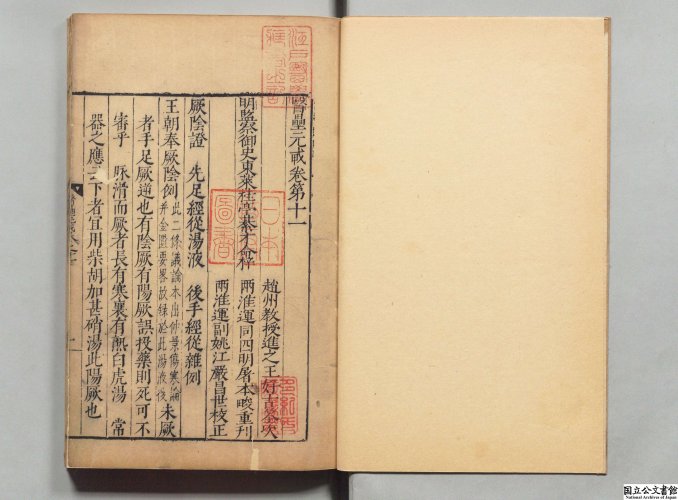 醫壘元戎卷第十一
趙州教授進之王好古纂次
明監察御史東萊桂亭綦才僉梓
兩淮運同四明屠本畯重刊
兩淮運副姚江嚴昌世校正
厥陰證　先足經從湯液　後手經從雜例
王朝奉厥陰例　此二條議論本出仲景傷寒論
并金匱要畧故錄於此湯液後　夫厥
者手足厥逆也有陰厥有陽厥誤投藥則死可不
審乎　脉滑而厥者表有寒裏有熱白虎湯　常
器之應云下者宜用柴胡加芒硝湯此陽厥也
日本
圖書
国立公文書館
National Archives of Japan